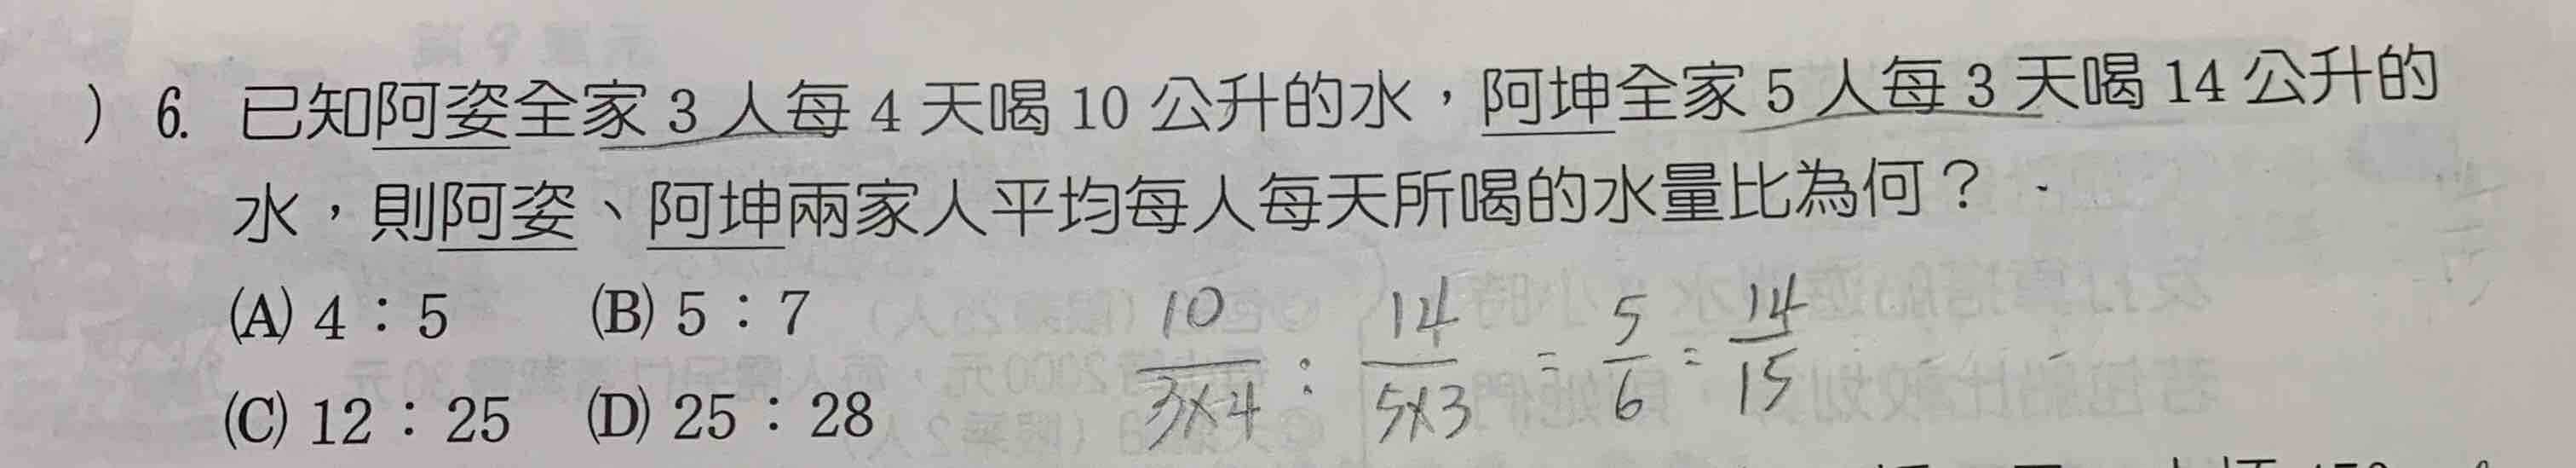 ) 6. 已知阿姿全家 3 人每 4 天喝 10 公升的水，阿坤全家 5 人每 3 天喝 14 公升的
水，則阿姿、阿坤兩家人平均每人每天所喝的水量比為何？
(A) 4：5 (B) 5：7
(C) 12：25 (D) 25：28
10/3×4 : 14/5×3 = 5/6 : 14/15